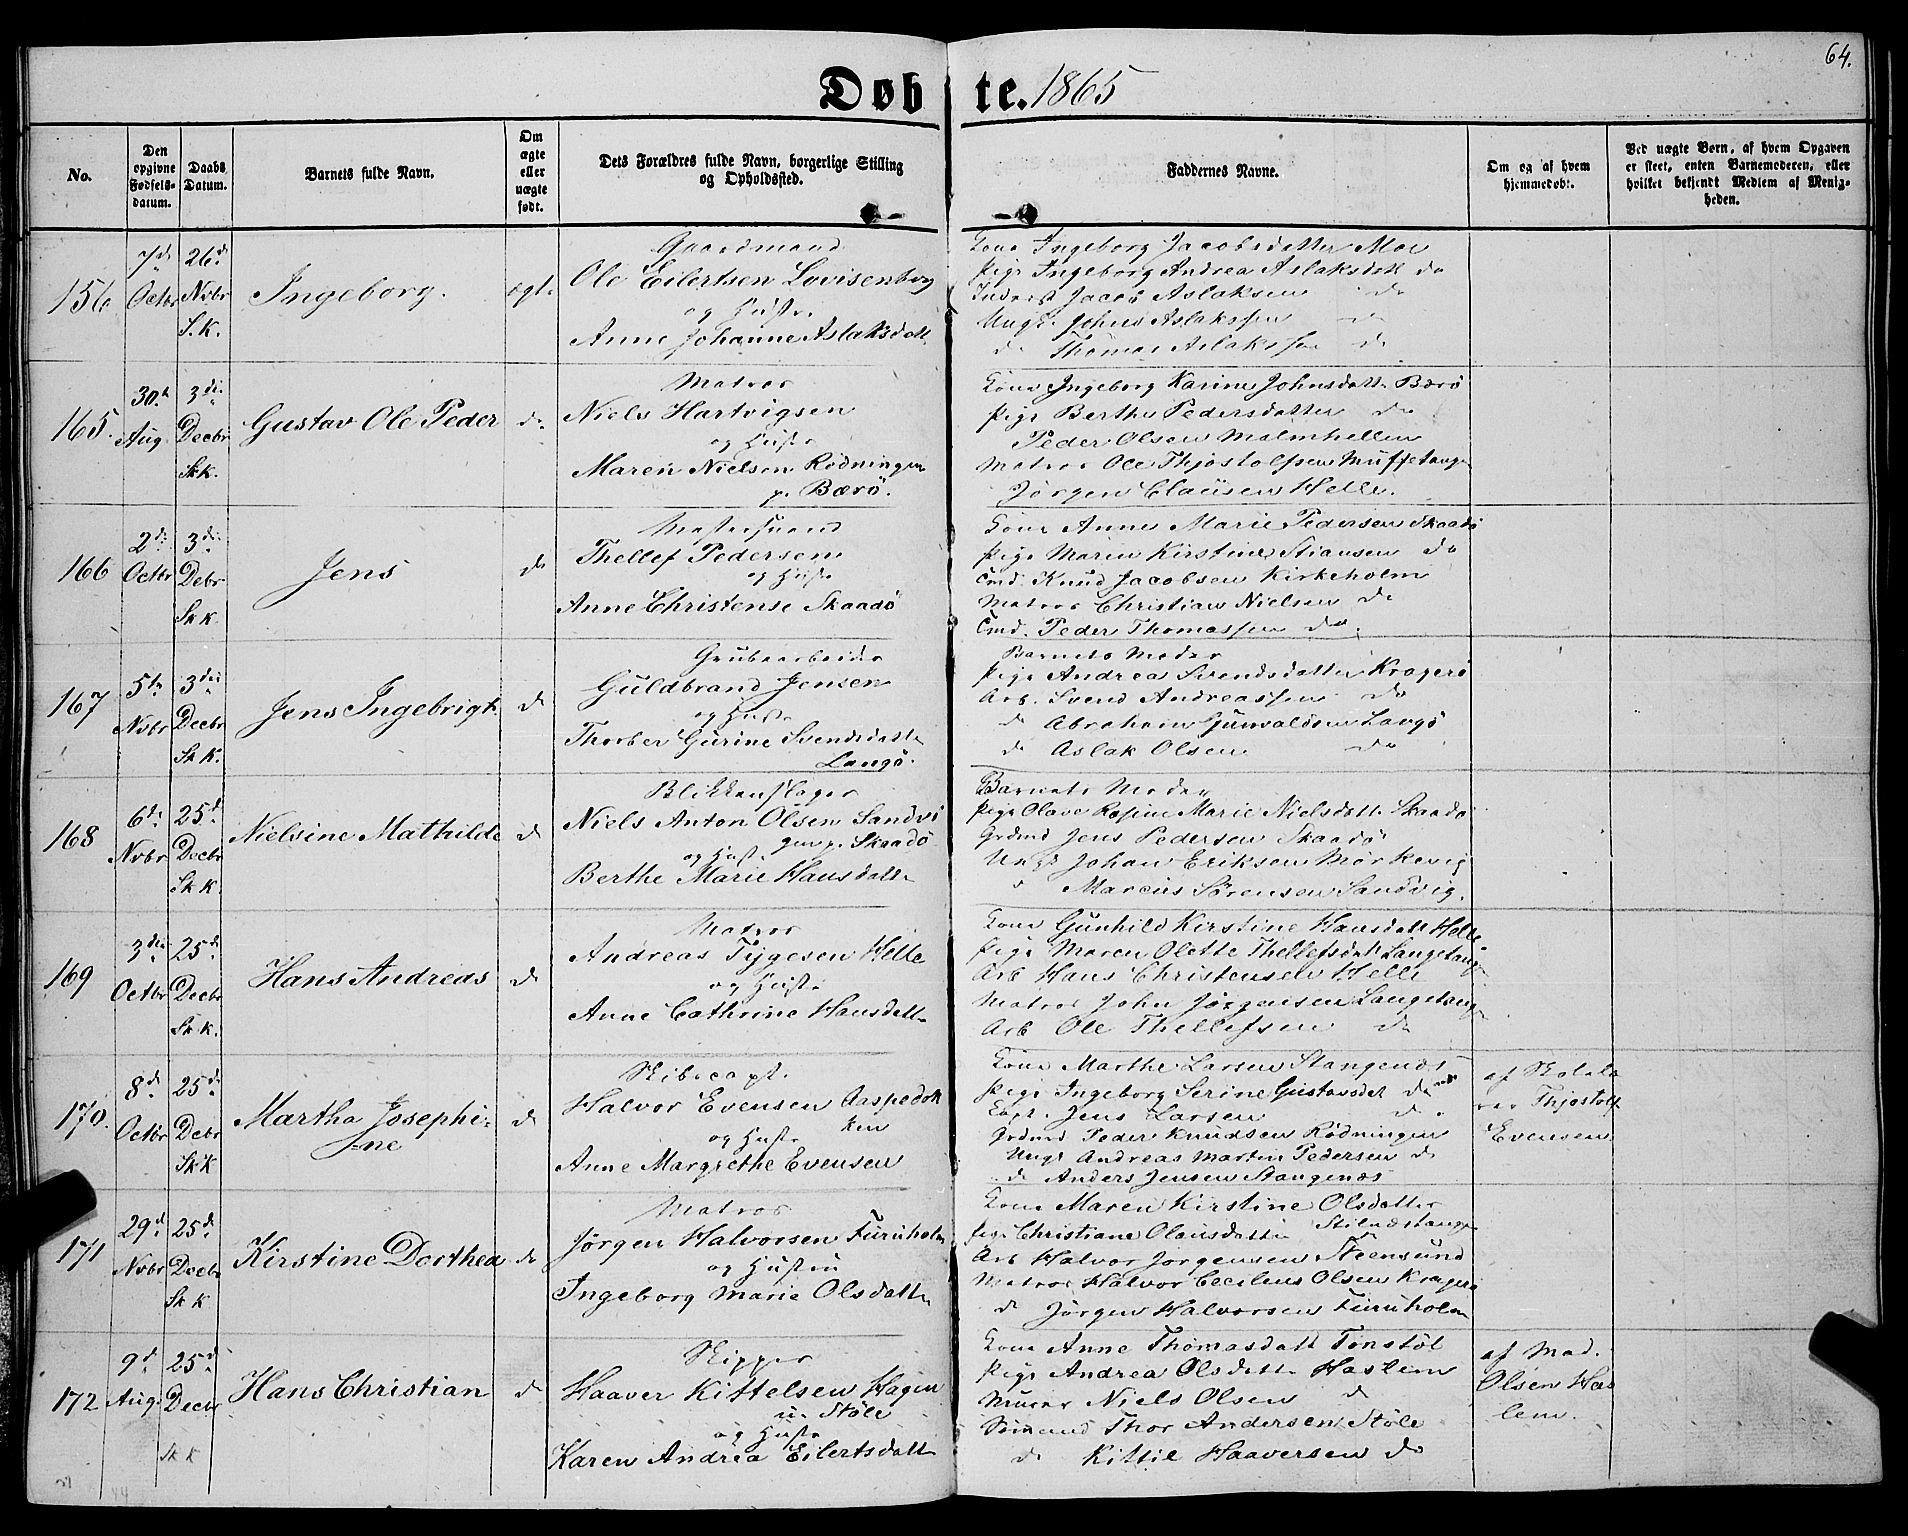 64.
Døbte. 1865
No.
Den opgivne Fødselsdatum.
Daabs Datum.
Barnets fulde Navn.
Om ægte eller uægte født.
Dets Forældres fulde Navn, borgerlige Stilling og Opholdssted.
Faddernes Navne.
Om og af hvem hjemmedøbt.
Ved uægte Børn, af hvem Opgaven er skeet, enten Barnemoderen, eller hvilket bekjendt Medlem af Menigheden.
156
7d Octbr
26d Nvbr S.K.
Ingeborg.
ægt.
Gaardmand
Ole Eilertsen Lovisenberg
og Hustr.
Anne Johanne Aslaksdatt.
Kone Ingeborg Jacobsdatter Moe
Pige Ingeborg Andrea Aslaksdtt do
Jacob Aslaksen do
Ungk. Johns Aslakssen do
do Thomas Aslakssen do
165.
30te Aug.
3die Decbr Sk K.
Gustav Ole Peder
do
Matros
Niels Hartvigsen
og Hustr
Maren Nielsen Rødningen
p. Bærø.
Kone Ingeborg Karine Johnsdatt. Bærø
Pige Berthe Pedersdatter do
Peder Olsen Malmhellen
Matros Ole Thjostolfsen Muffetangen
Jørgen Clausen Helle.
166
2den Octbr
3die Debr Sk K.
Jens
do
Thellef Pedersen
og Hustr
Anne Christense Skaadø
Kone Anne Marie Pedersen Skaadø
Pige Maren Kirstine Stiansen do
Knud Jacobsen Kirkeholm
Matros Christian Nielsen do
Peder Thomassen do.
167
5te Nvbr
3die Decbr Sk K.
Jens Ingebrigt.
do
Grubearbeider
Guldbrand Jensen
og Hustr
Thorber Gurine Svendsdatt.
Langø.
Barnets Moder
Pige Andrea Svendsdatter Kragerø
Arb. Svend Andreassen do
do Abraham Gunvaldsen Langø
do Aslak Olsen do
168
6te Nvbr
25d Decbr Sk K.
Nielsine Mathilde
do
Blikkenslager
Niels Anton Olsen Sandvi
gen p. Skaadø
og Hust.
Berthe Marie Hansdatt.
Barnets Moder
Pige Olave Rosine Marie Nielsdatt. Skaadø
Grdmd Jens Pedersen Skaadø
Ungk Johan Eriksen Mørkevig
Marcus Sørensen Sandvig.
169
3die Octbr
25d Decbr Sk K.
Hans Andreas
do
Matros
Andreas Tygesen Helle
og Hustr
Anne Cathrine Hansdatt.
Kone Gunhild Kirstine Hansdatt Helle
Pige Maren Olette Thellefsdatt Langetang.
Arb Hans Christensen Helle
Matros John Jørgensen Langetang.
Arb Ole Thellefsen do
170.
8d Octbr
25d Debr Sk K
Martha Josephi-
ne
do
Skibscapt.
Halvor Evensen Aaspedok
ken
og Hustr
Anne Margrethe Evensen
Kone Marthe Larsen Stangenæs
Pige Ingeborg Serine Gustavsdtt do
Capt. Jens Larsen do.
Grdmd Peder Knudsen Rødningen
Ungk Andreas Martin Pedersen do
do Anders Jensen Stangenæs
af Skolelæ
rer Thjostolf
Evensen.
171
29d Nvbr
25d Decbr Sk K
Kirstine Dorthea
do
Matros
Jørgen Halvorsen Furuholm
og Hustru
Ingeborg Marie Olsdatt.
Kone Maren Kirstine Olsdatter
Pige Christiane Olausdatt.
Arb Halvor Jørgensen Steensund
Matros Halvor Cecilius Olsen Kragerø
do Jørgen Halvorsen Furuholm
172
9d Aug.
25d Decbr Sk K
Hans Christian
do
Skipper
Haaver Kittelsen Hagen
u. Støle
og Hustr
Karen Andrea Eilertsdatt.
Kone Anne Thomasdatt Tønstøl
Pige Andrea Olsdatt. Haslem
Murer Niels Olsen do
Sømand Thor Andersen Støle
do Kittil Haaversen do
af Mad.
Olsen Has
lem.